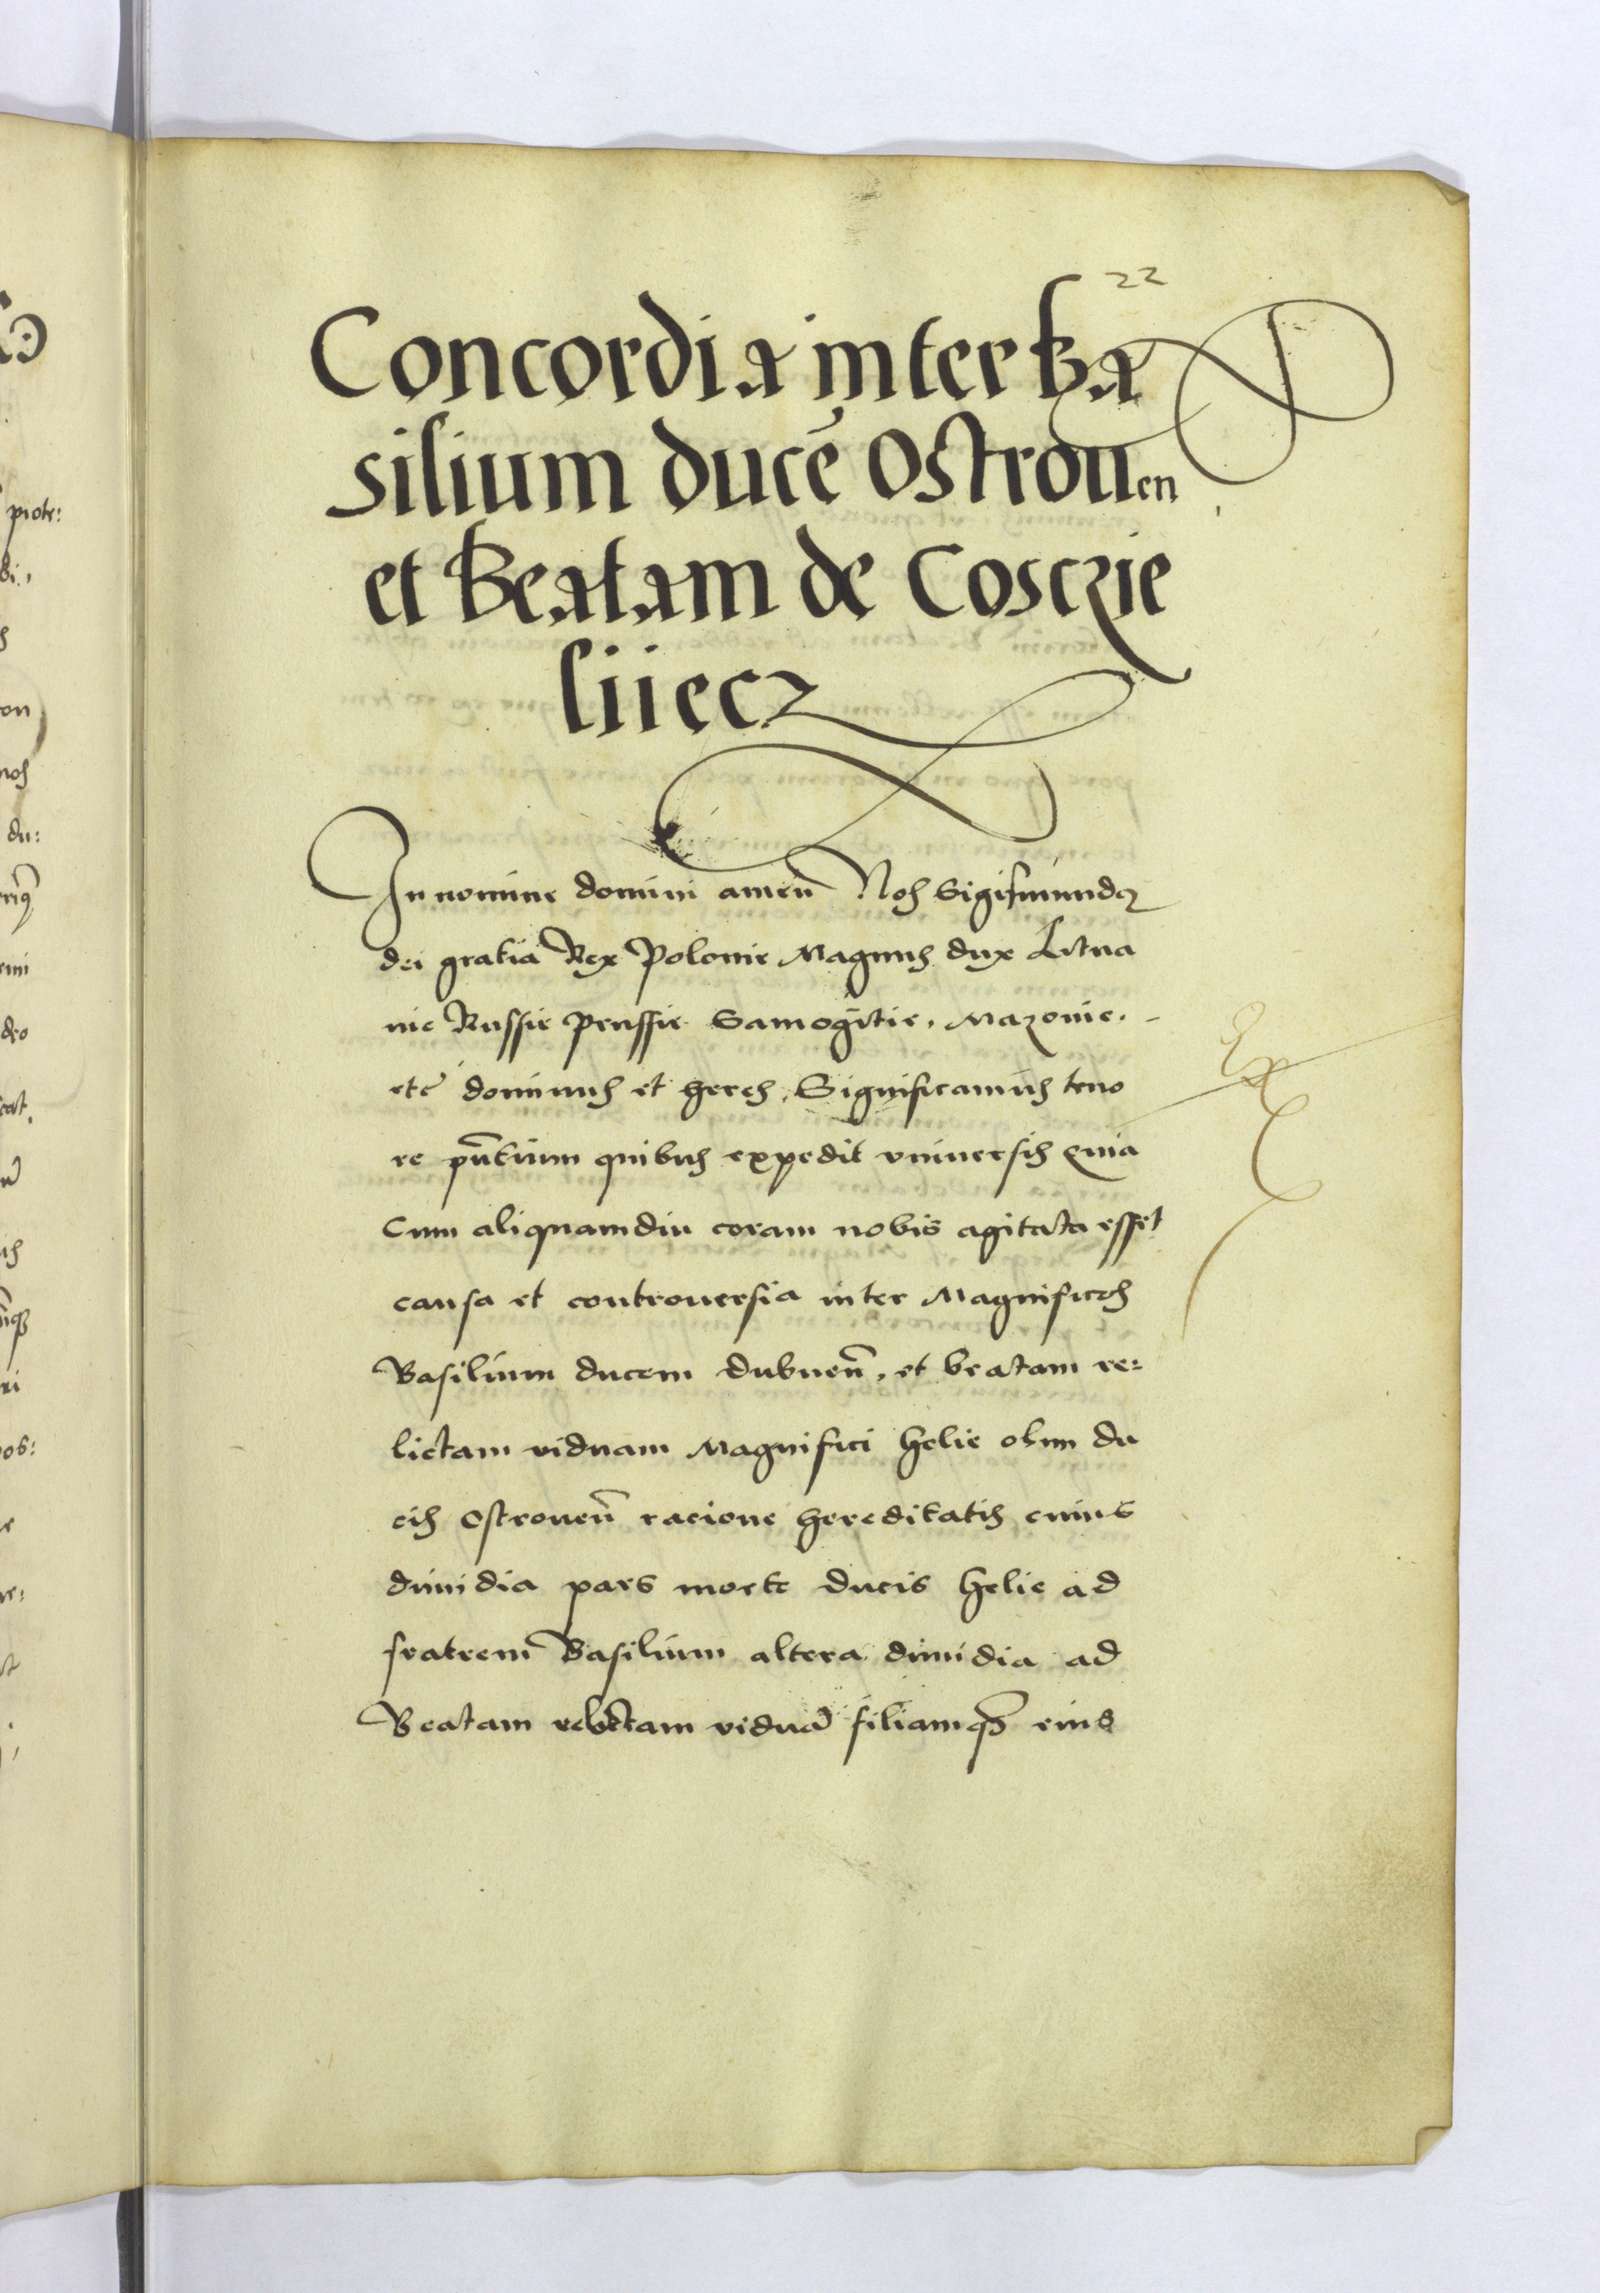 22
Concordia inter Ba
silium ducē Ostrouen
et Beatam de Cosczie
liiecz
In nomine domini amen Nos Sigismundꝰ
dei gratia Rex Polonie Magnus dux Litua
nie Russie Prussie Samogitie, Mazouie.
etc̄ dominus et heres, Significamus teno
re pn̄tium quibus expedit vniuersis Quia
Cum aliquamdiu coram nobis agitata esset
causa et controuersia inter Magnificos
Basilium ducem dubnen̄, et beatam re:
lictam viduam Magnifici Helie olim du
cis Ostrouen̄ racione hereditatis cuius
dimidia pars morte ducis Helie ad
fratrem Basilium altera dimidia ad
Beatam relictam viduā filiamqꝫ eius